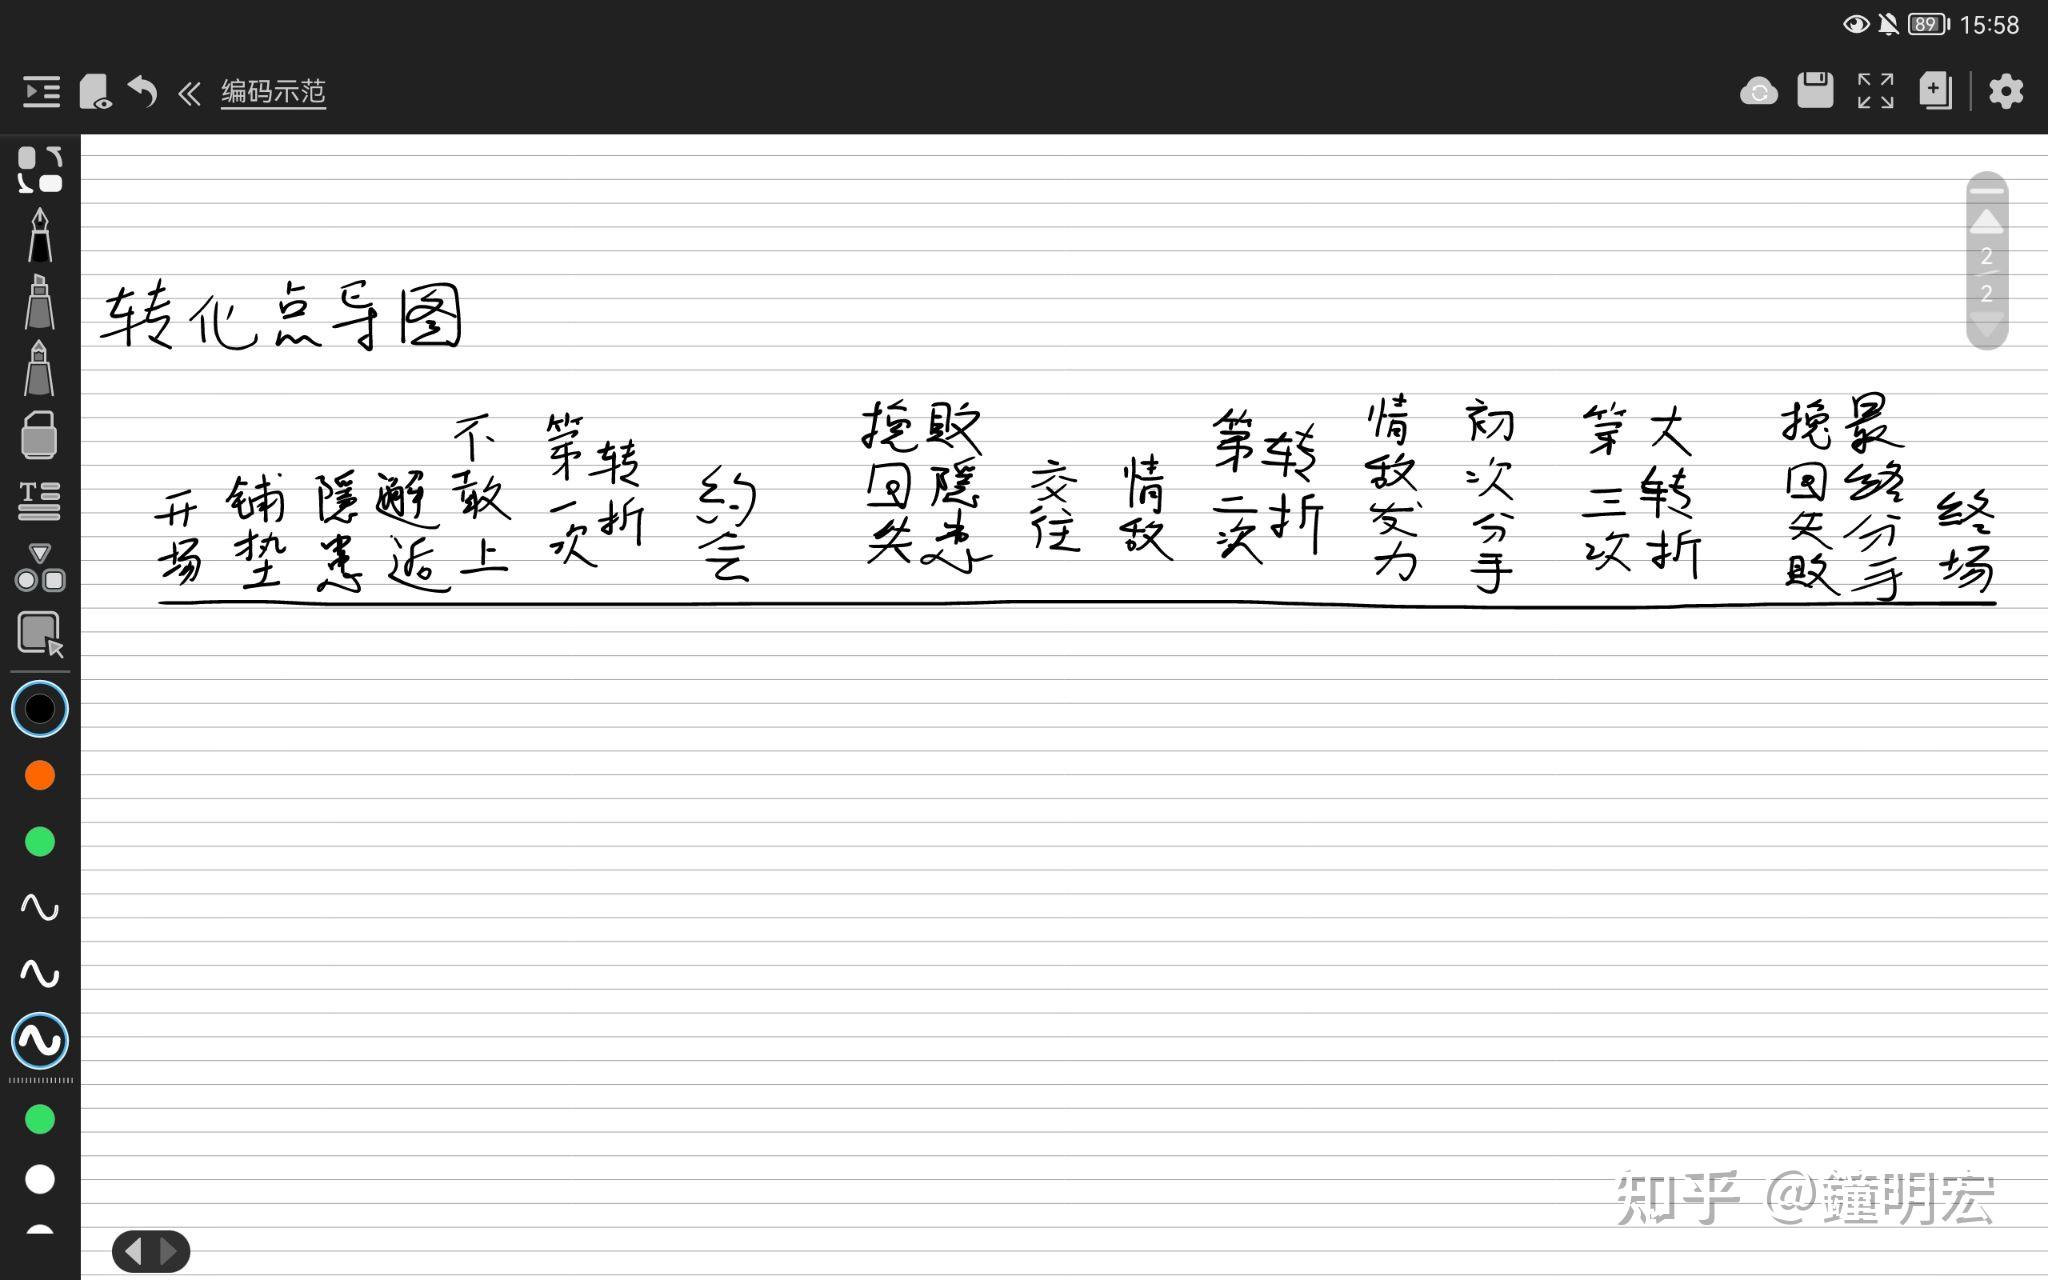 89 15:58
编码示范
2
2
转化点导图
开场
铺垫
隐患
邂逅
不敢上
第一次
转折
约会
挽回失
败隐患
交往
情敌
第二次
转折
情敌发力
初次分手
第三次
大转折
挽回失败
最终分手
终场
知乎 @鐘明宏